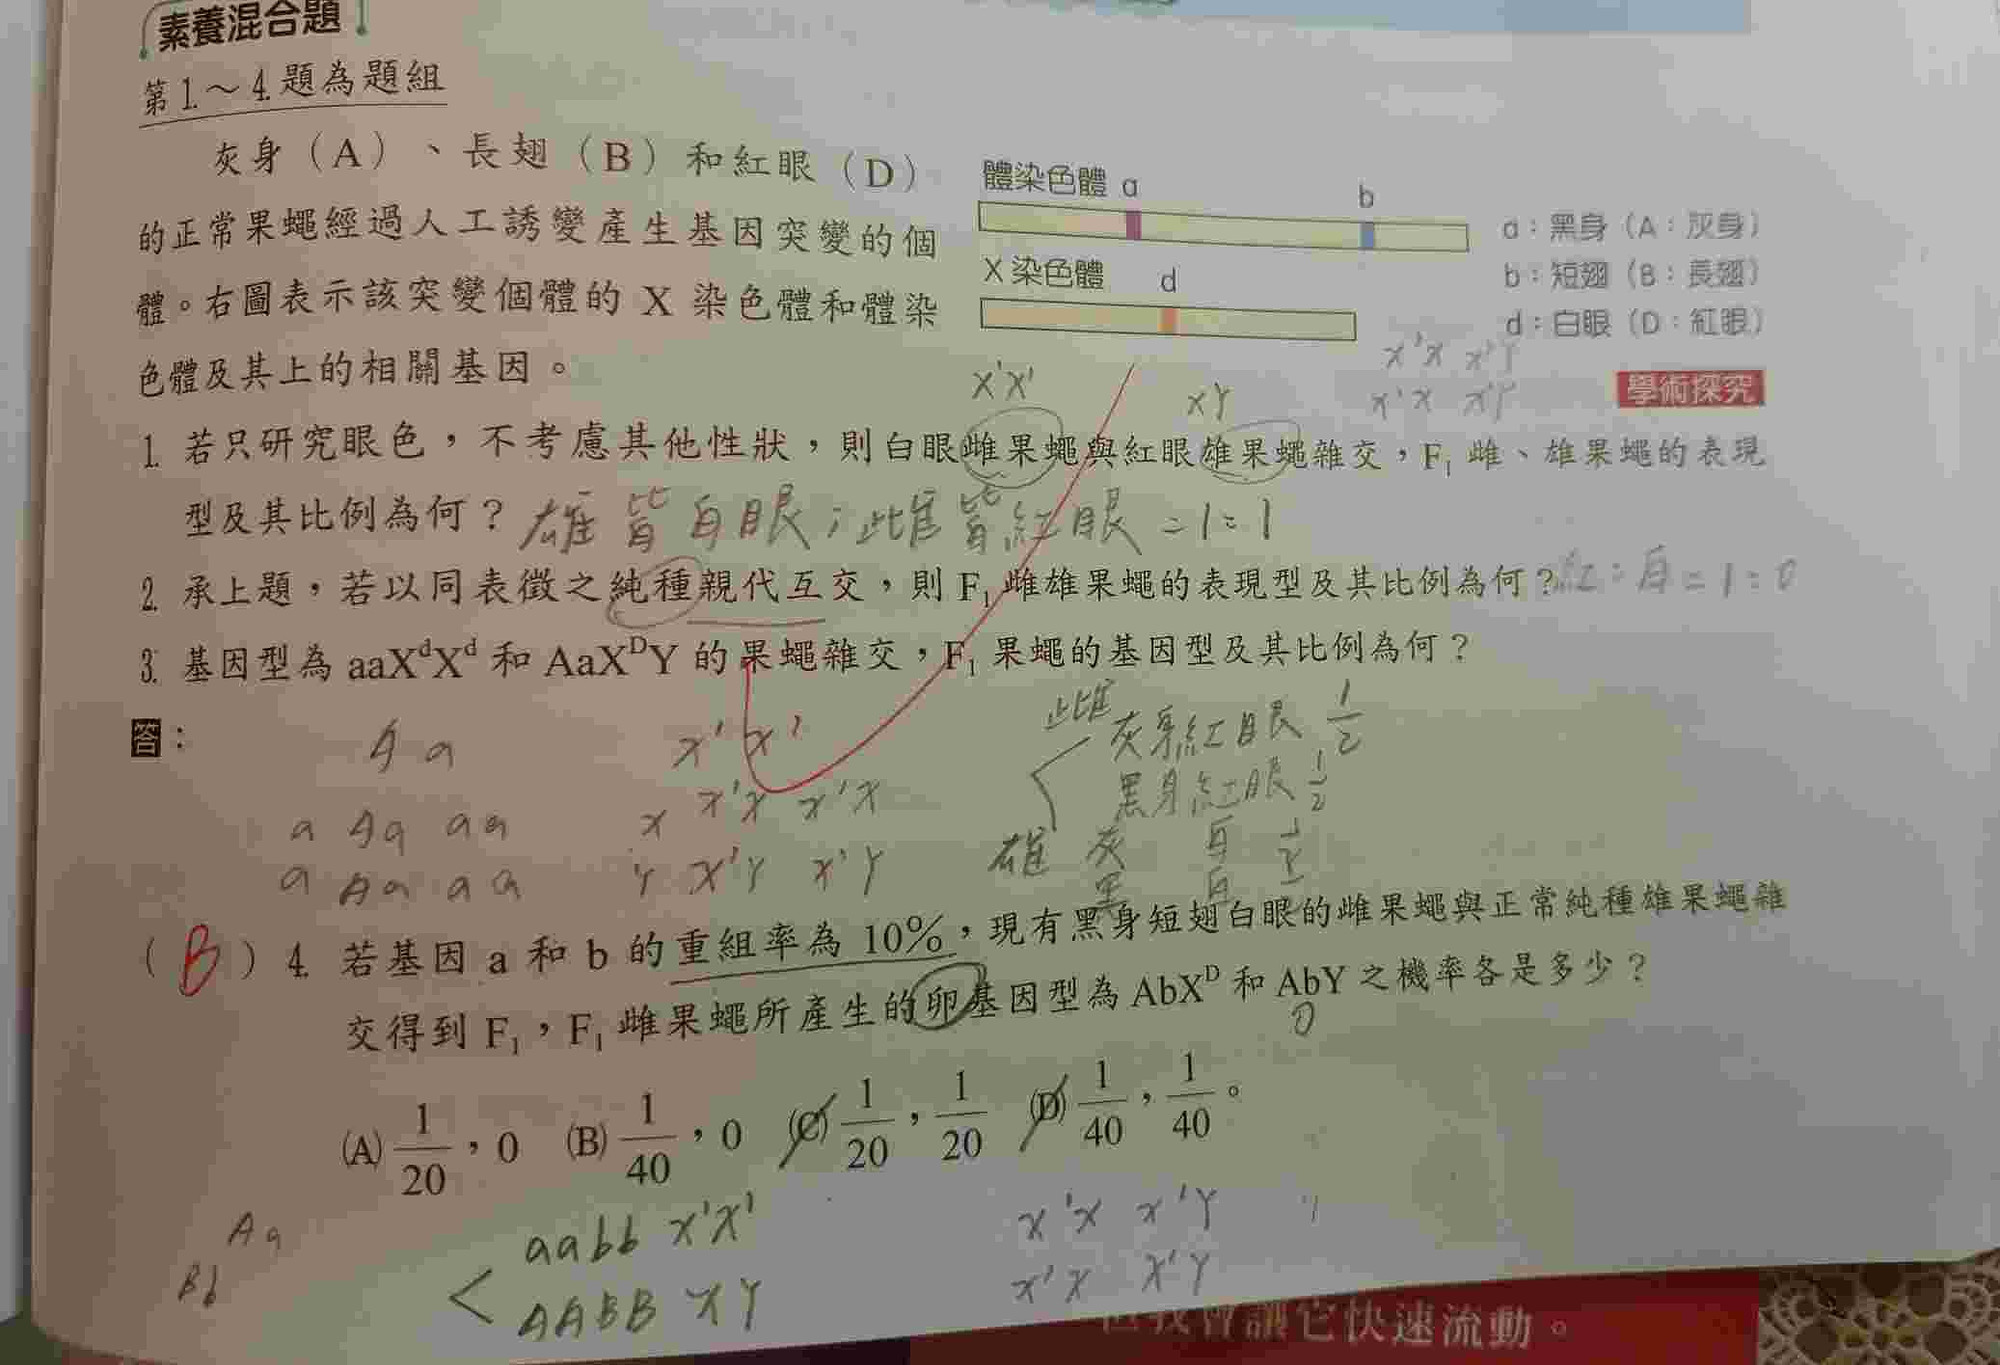 素養混合題
第1.～4.題為題組
灰身（A）、長翅（B）和紅眼（D）
的正常果蠅經過人工誘變產生基因突變的個
體。右圖表示該突變個體的 X 染色體和體染
色體及其上的相關基因。
體染色體 a b
X 染色體 d
a：黑身（A：灰身）
b：短翅（B：長翅）
d：白眼（D：紅眼）
x'x x'Y
x'x x'Y
學術探究
X'X' XY
1. 若只研究眼色，不考慮其他性狀，則白眼雌果蠅與紅眼雄果蠅雜交，F₁ 雌、雄果蠅的表現
型及其比例為何？雄皆白眼；雌皆紅眼 = 1：1
2. 承上題，若以同表徵之純種親代互交，則 F₁ 雌雄果蠅的表現型及其比例為何？紅：白 = 1：0
3. 基因型為 aaXᵈXᵈ 和 AaXᴰY 的果蠅雜交，F₁ 果蠅的基因型及其比例為何？
答：
A a
a Aa aa
a Aa aa
x' x'
x x'x x'x
Y X'Y x'Y
雌 灰身紅眼 1/2
黑身紅眼 1/2
雄 灰 白
黑 白
（B）4. 若基因 a 和 b 的重組率為 10%，現有黑身短翅白眼的雌果蠅與正常純種雄果蠅雜
交得到 F₁，F₁ 雌果蠅所產生的卵基因型為 AbXᴰ 和 AbY 之機率各是多少？
0
(A) 1/20，0 (B) 1/40，0 (C) 1/20，1/20 (D) 1/40，1/40。
Aa
Bb
aabb x'x'
AABB XY
x'x x'Y
x'x X'Y
我會讓它快速流動。